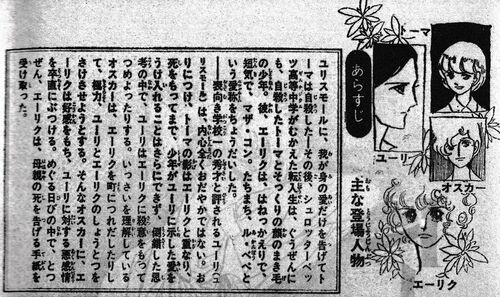 トーマ
ユーリ
オスカー
エーリク
主な登場人物
あらすじ
ユリスモールに、我が身の愛だけを告げてト
ーマは自殺した。その後、シュロッターベッ
ツ高等中学がむかえた転入生は、ぐうぜんに
も、自殺したトーマとそっくりの顔のまき毛
の少年。彼、エーリクは、はねっかえりで、
短気で、マザ・コン。たちまち、ル・ベベと
いう愛称をちょうだいした。
表向き学校一の秀才と評されるユーリ（ユ
リスモール）は、内心全くおだやかではない。お
りにつけ、トーマの影はエーリクと重なり、
死をもってまで、少年がユーリに示した愛を
うけいれることはさらにできず、倒錯した思
考の中で、ユーリはエーリクに殺意をもって
つめよったりする。いっさいを理解している
オスカーは、エーリクを町につれだしたりし
て、極力、ユーリとエーリクのしょうとつを
さけさせようとする。そんなオスカーに、エ
ーリクは好感をもち、ユーリに対する悪感情
を卒直にぶつける。めぐる日びの中で、とつ
ぜん、エーリクは、母親の死を告げる手紙を
受け取った。